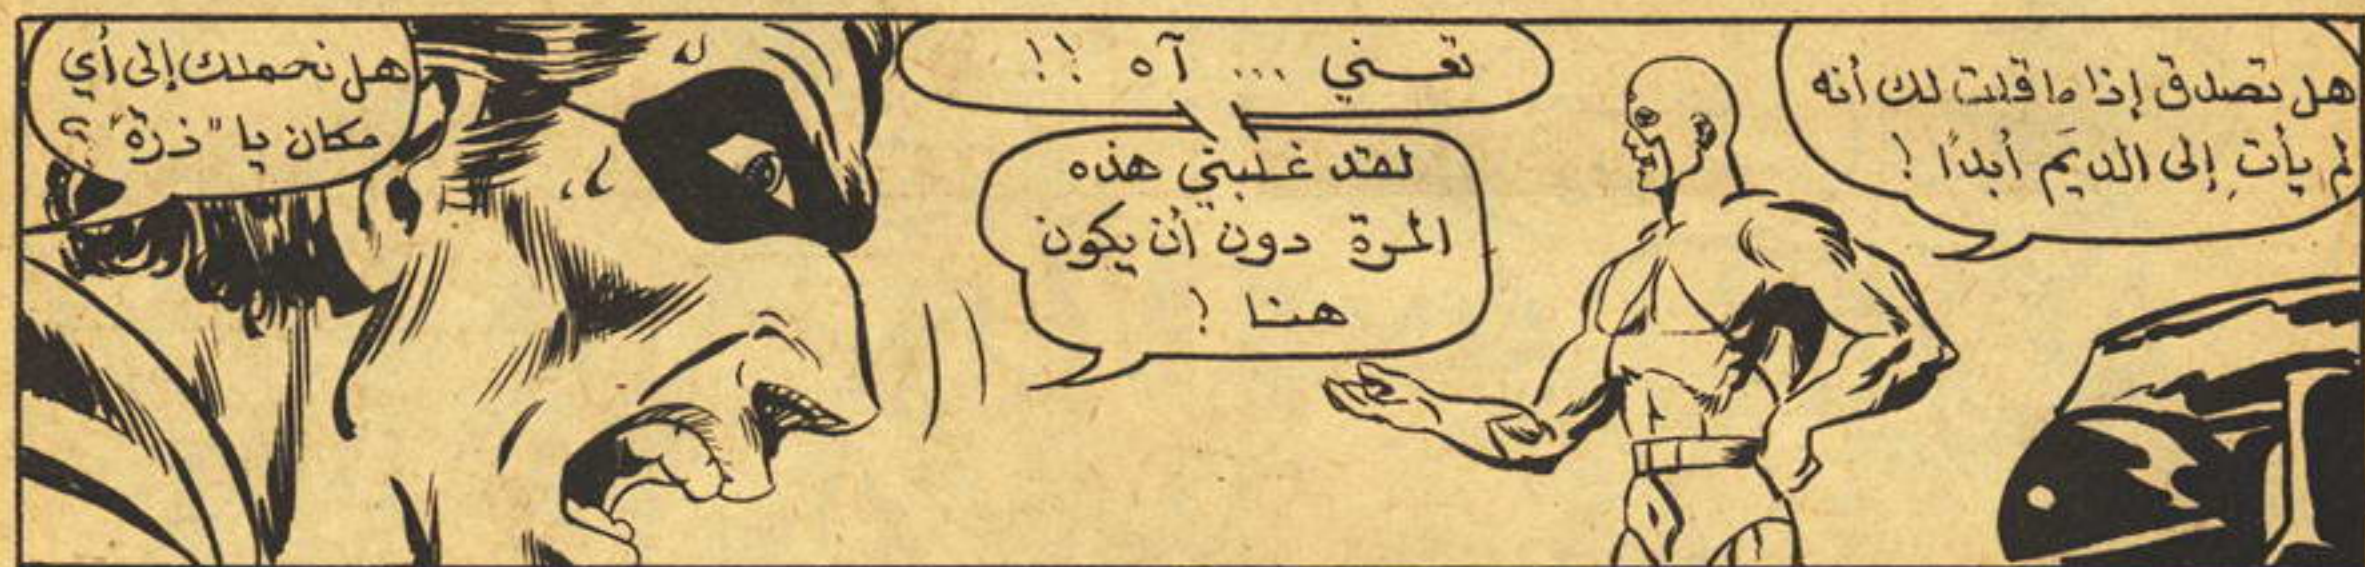 هل تصدق إذا ما قلت لك أنه
لم يأتِ إلى الديَم أبدًا !
تعني ... آه !!
لقد غلبني هذه
المرة دون أن يكون
هنا !
هل نحملك إلى أي
مكان يا "ذرّة" ؟